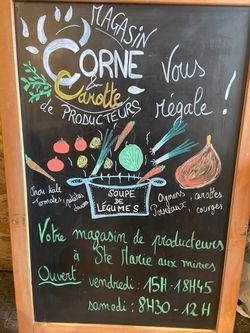 MAGASIN
CORNE
&
Carotte
de PRODUCTEURS
Vous
régale !
Chou kale
Tomates, patates
douces
SOUPE
DE
LÉGUMES
Oignons, carottes
Poireaux, courges
Votre magasin de producteurs
à Ste Marie aux mines
Ouvert : vendredi : 15H - 18H45
samedi : 8H30 - 12H